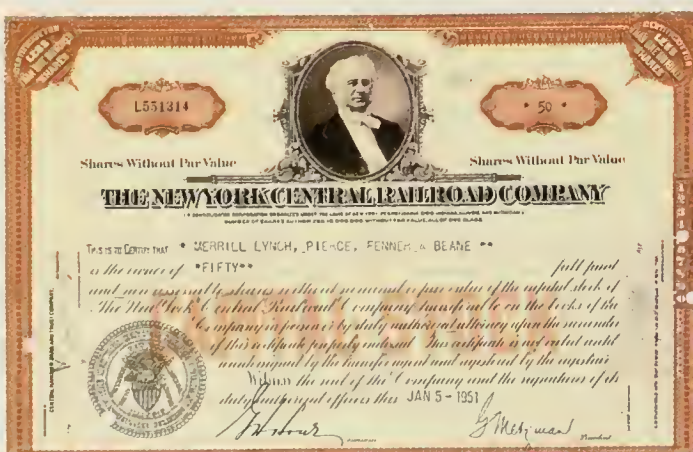 CERTIFICATE FOR LESS THAN ONE HUNDRED SHARES
CERTIFICATE FOR LESS THAN ONE HUNDRED SHARES
L551314
* 50 *
Shares Without Par Value
Shares Without Par Value
THE NEW YORK CENTRAL RAILROAD COMPANY
THIS IS TO CERTIFY THAT * MERRILL LYNCH, PIERCE, FENNER & BEANE **
is the owner of *FIFTY** full paid
and non assessable shares without nominal or par value of the capital stock of
The New York Central Railroad Company transferable on the books of the
Company in person or by duly authorized attorney upon the surrender
of this certificate properly endorsed. This certificate is not valid until
countersigned by the transfer agent and registered by the registrar.
Witness the seal of this Company and the signatures of its
duly authorized officers this JAN 5 - 1951
G Metzman
President